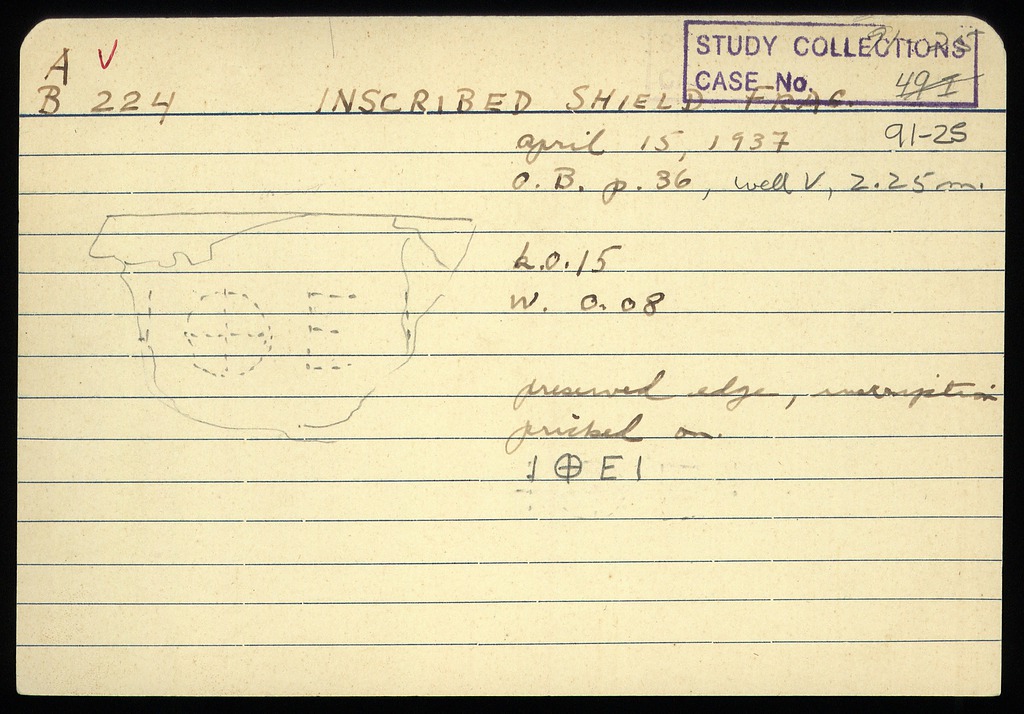 A V
STUDY COLLECTIONS
CASE No. 49 I
B 224 INSCRIBED SHIELD FRAG.
April 15, 1937 91-25
O. B. p. 36, well V, 2.25 m.
L. 0.15
W. 0.08
preserved edge, inscription
pricked on.
Ι ⊕ Ε Ι
Ι ⊕ Ε Ι